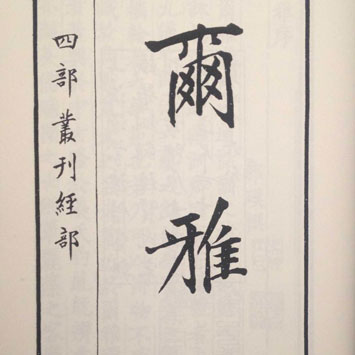 爾雅
四部叢刊經部